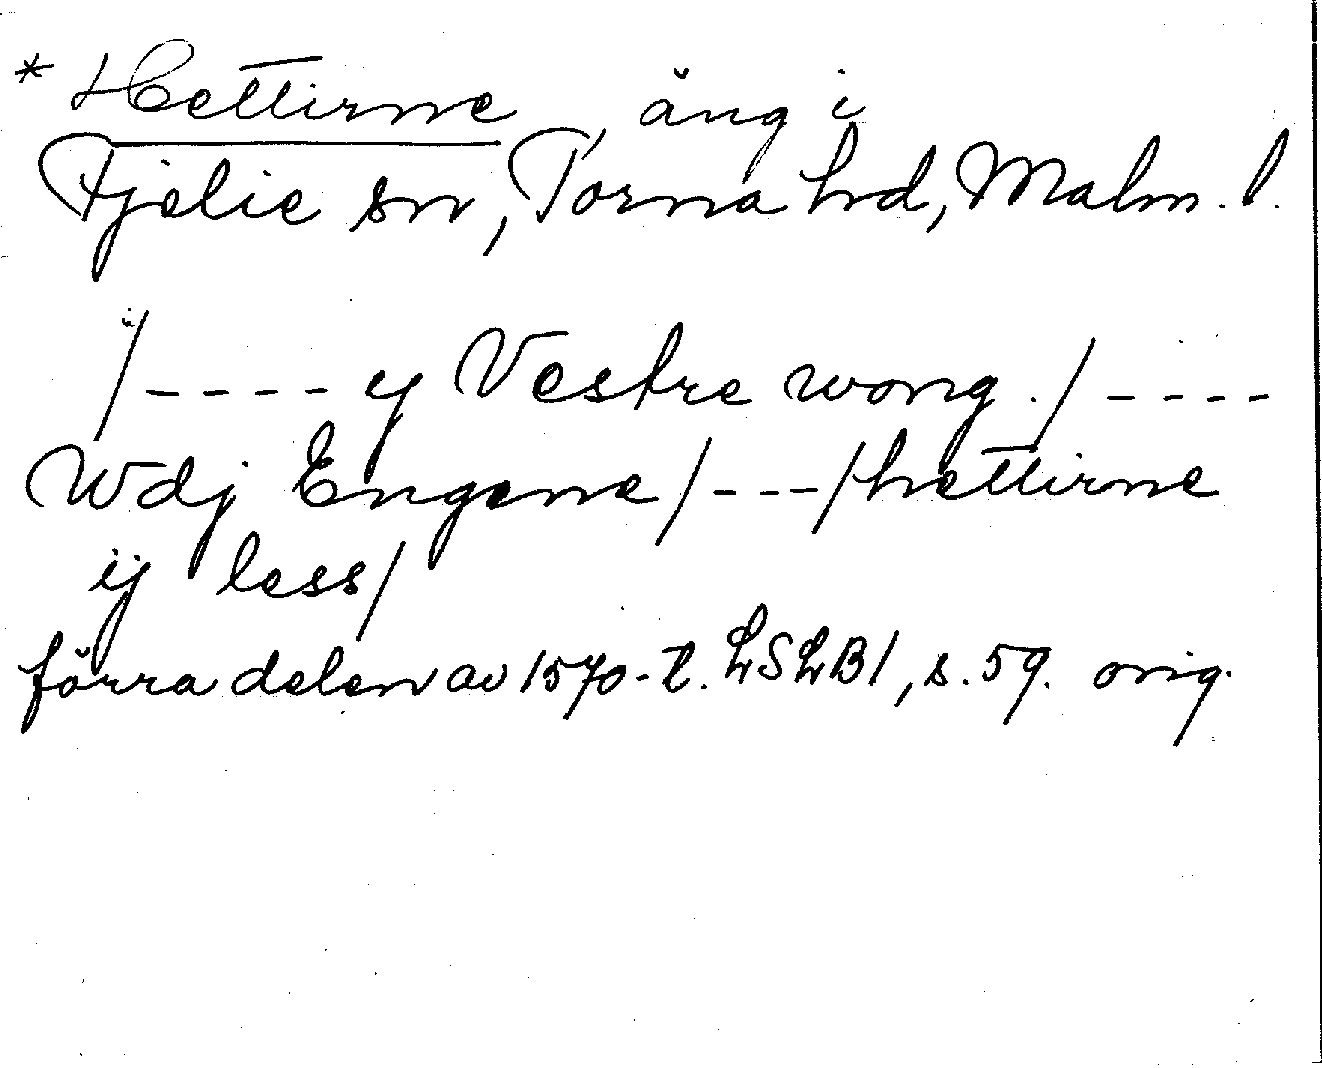 * Hettirne, äng i
Fjelie sn, Torna hd, Malm. l.
/---- y Vestre wong. / ----
Wdj Engene / --- / hettirne
ij less /
förra delen av 1570-t. LSLB1, s. 59. orig.